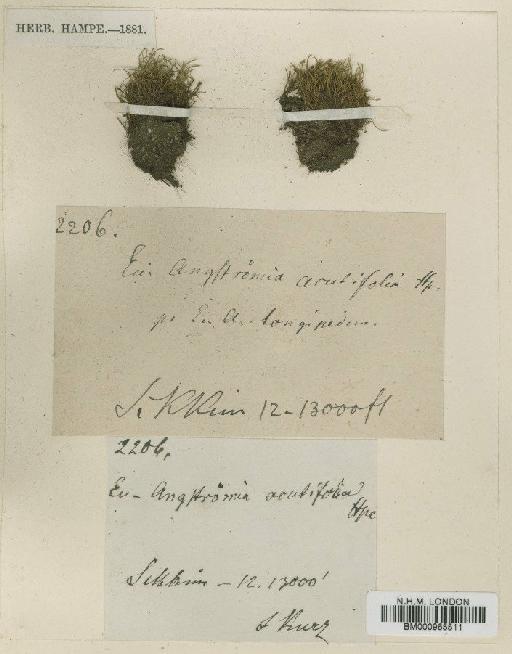 HERB. HAMPE.—1881.
2206.
Eu-Angströmia acutifolia Hp.
Eu A. longipedem.
Sikkim 12-13000 ft
2206.
Eu-Angströmia acutifolia
Hpe
Sikkim - 12.13000'
S Kurz
N.H.M. LONDON